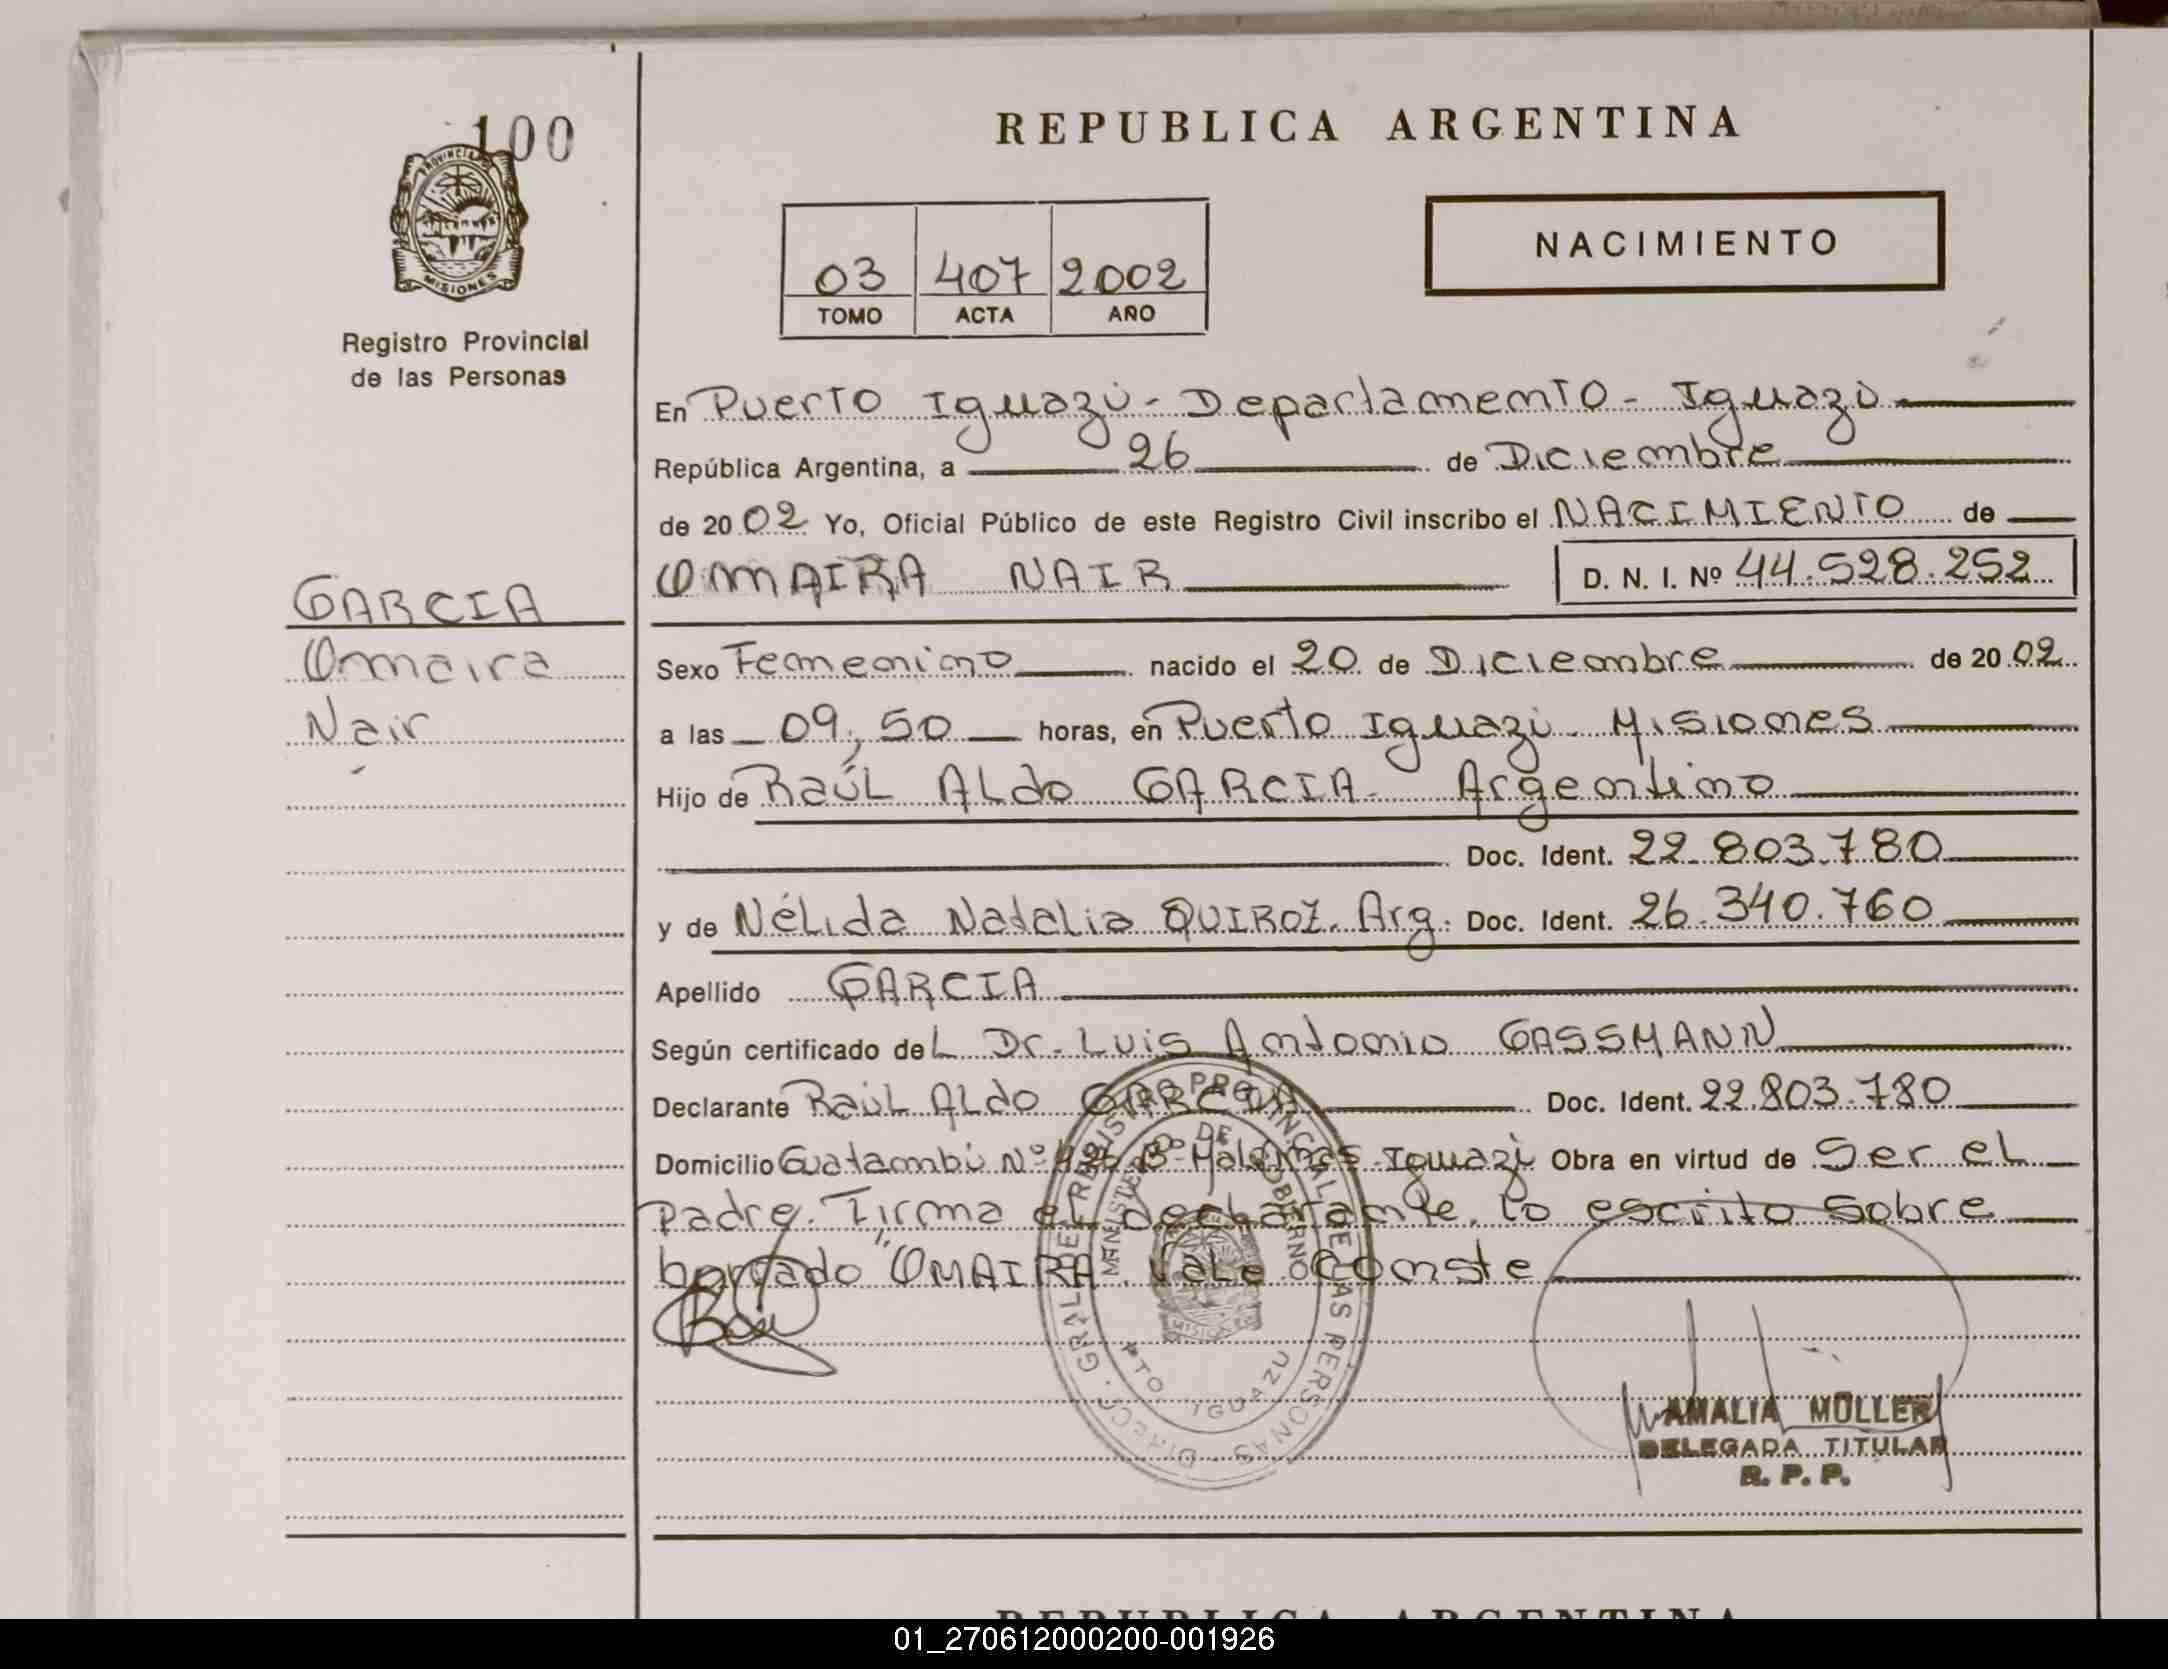 100
PROVINCIA
MISIONES
Registro Provincial
de las Personas
REPUBLICA ARGENTINA
03 407 2002
TOMO ACTA AÑO
NACIMIENTO
En Puerto Iguazú - Departamento - Iguazú
República Argentina, a 26 de Diciembre
de 2002 Yo, Oficial Público de este Registro Civil inscribo el NACIMIENTO de
OMAIRA NAIR D. N. I. Nº 44.528.252
GARCIA
Omaira
Nair
Sexo Femenino nacido el 20 de Diciembre de 2002
a las 09,50 horas, en Puerto Iguazú. Misiones
Hijo de Raúl Aldo GARCIA - Argentino
Doc. Ident. 22.803.780
y de Nélida Natalia QUIROZ. Arg. Doc. Ident. 26.340.760
Apellido GARCIA
Según certificado deL Dr. Luis Antonio GASSMANN
Declarante Raúl Aldo GARCIA Doc. Ident. 22.803.780
Domicilio Guatambú Nº Bº Iguazú Obra en virtud de Ser el
Padre. Firma el declarante. Lo escrito sobre
borrado "OMAIRA. Vale Conste
DIRECC. GRAL. DE REGISTRO PROVINCIAL DE LAS PERSONAS
MINISTERIO DE GOBIERNO
MISIONES
PTO IGUAZU
AMALIA MÜLLER
DELEGADA TITULAR
R. P. P.
REPUBLICA ARGENTINA
01_270612000200-001926